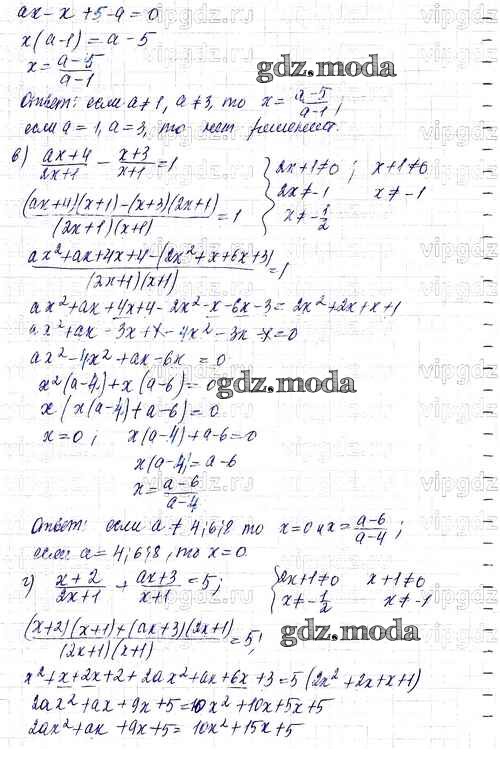 ax - x + 5 - a = 0
x(a-1) = a - 5
x = \frac{a-5}{a-1}
gdz.moda
Ответ: если a ≠ 1, a ≠ 3, то x = \frac{a-5}{a-1};
если a = 1, a = 3, то нет решения.
в) \frac{ax+4}{2x+1} - \frac{x+3}{x+1} = 1 { 2x+1≠0 ; x+1≠0
2x ≠ -1 x ≠ -1
x ≠ -\frac{1}{2}
\frac{(ax+4)(x+1)-(x+3)(2x+1)}{(2x+1)(x+1)} = 1
\frac{ax²+ax+4x+4-(2x²+x+6x+3)}{(2x+1)(x+1)} = 1
ax²+ax+4x+4-2x²-x-6x-3 = 2x²+2x+x+1
ax²+ax-3x+1-4x²-3x-1=0
ax²-4x²+ax-6x = 0
x²(a-4)+x(a-6) = 0
gdz.moda
x(x(a-4)+a-6) = 0
x=0 ; x(a-4)+a-6=0
x(a-4) = a-6
x = \frac{a-6}{a-4}
Ответ: если a ≠ 4; 6; 8 то x=0 и x = \frac{a-6}{a-4};
если a = 4, 6; 8, то x=0
г) \frac{x+2}{2x+1} + \frac{ax+3}{x+1} = 5; { 2x+1≠0 x+1≠0
x ≠ -\frac{1}{2} x ≠ -1
\frac{(x+2)(x+1)+(ax+3)(2x+1)}{(2x+1)(x+1)} = 5;
gdz.moda
x²+x+2x+2+2ax²+ax+6x+3=5(2x²+2x+x+1)
2ax²+ax+9x+5=10x²+10x+5x+5
2ax²+ax+9x+5=10x²+15x+5